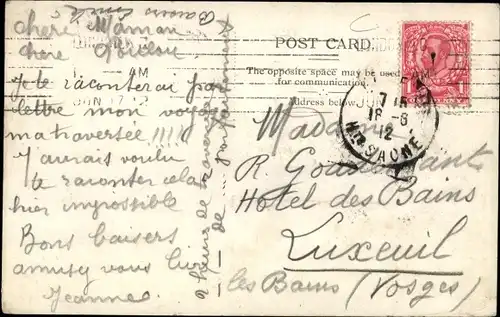 chère Maman
chère Loulou
Je te raconterai par
lettre mon voyage
ma traversée !!!!
J'aurais voulu
te raconter cela
hier impossible
Bons baisers
amusez vous bien
Jeanne
Baisers
POST CARD.
The opposite space may be used
for communication.
Address below
AM
JUN 17 12
7 15
18-6
12
Hte SAONE
Madame
R.
Hotel des Bains
Luxeuil
les Bains (Vosges)
heures de traversée
de